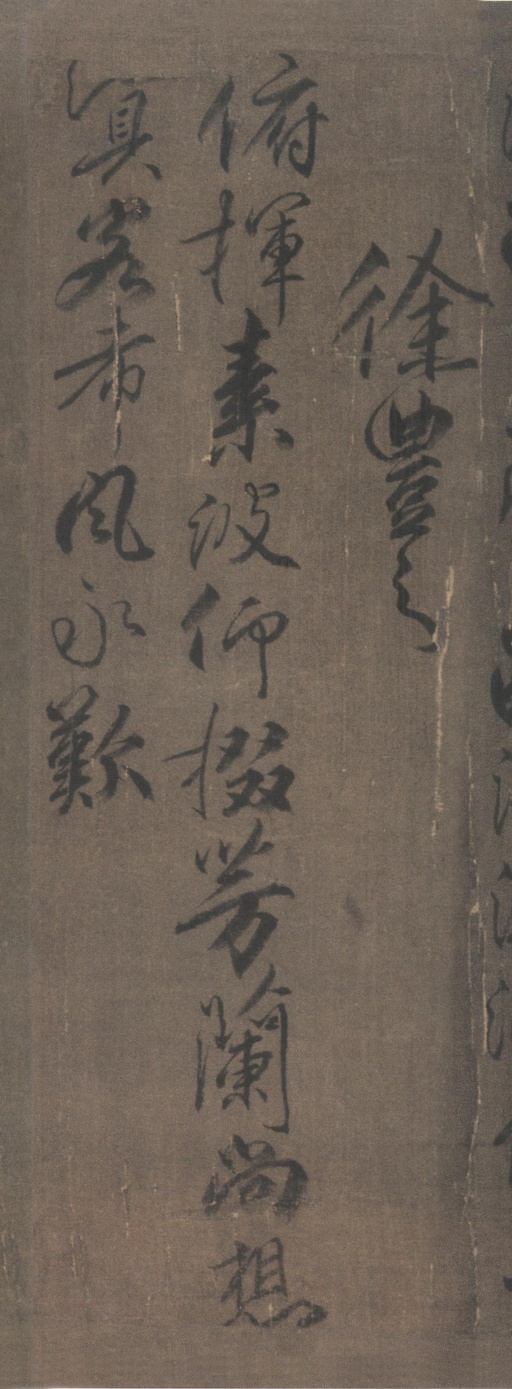 徐豐之
俯揮素波仰掇芳蘭尚想
冥客希風永歎